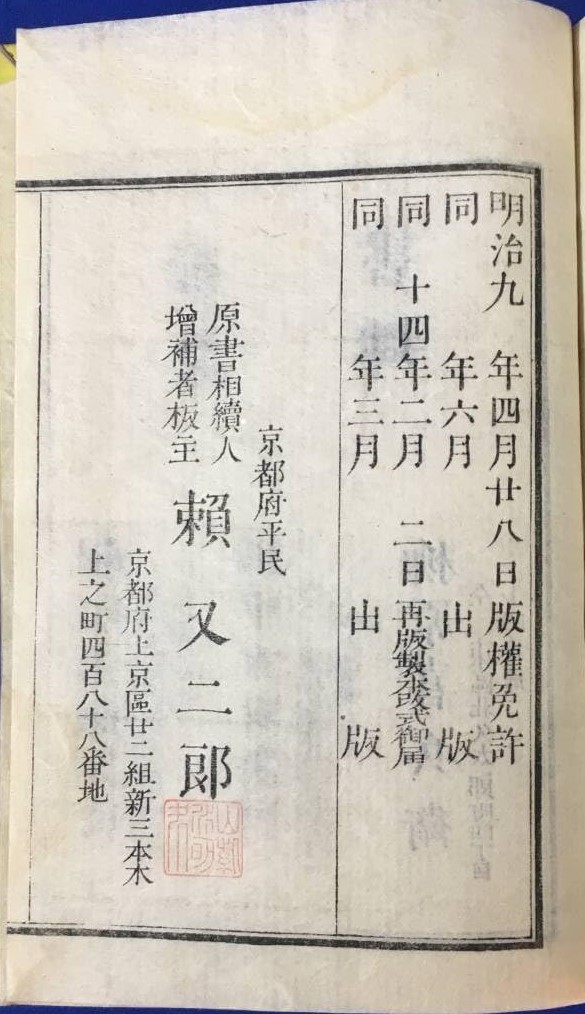 明治九年四月廿八日版權免許
同年六月出版
同十四年二月二日再版製本改式御届
同年三月出版
京都府平民
原書相續人
增補者板主
賴又二郎
京都府上京區廿二組新三本木
上之町四百八十八番地